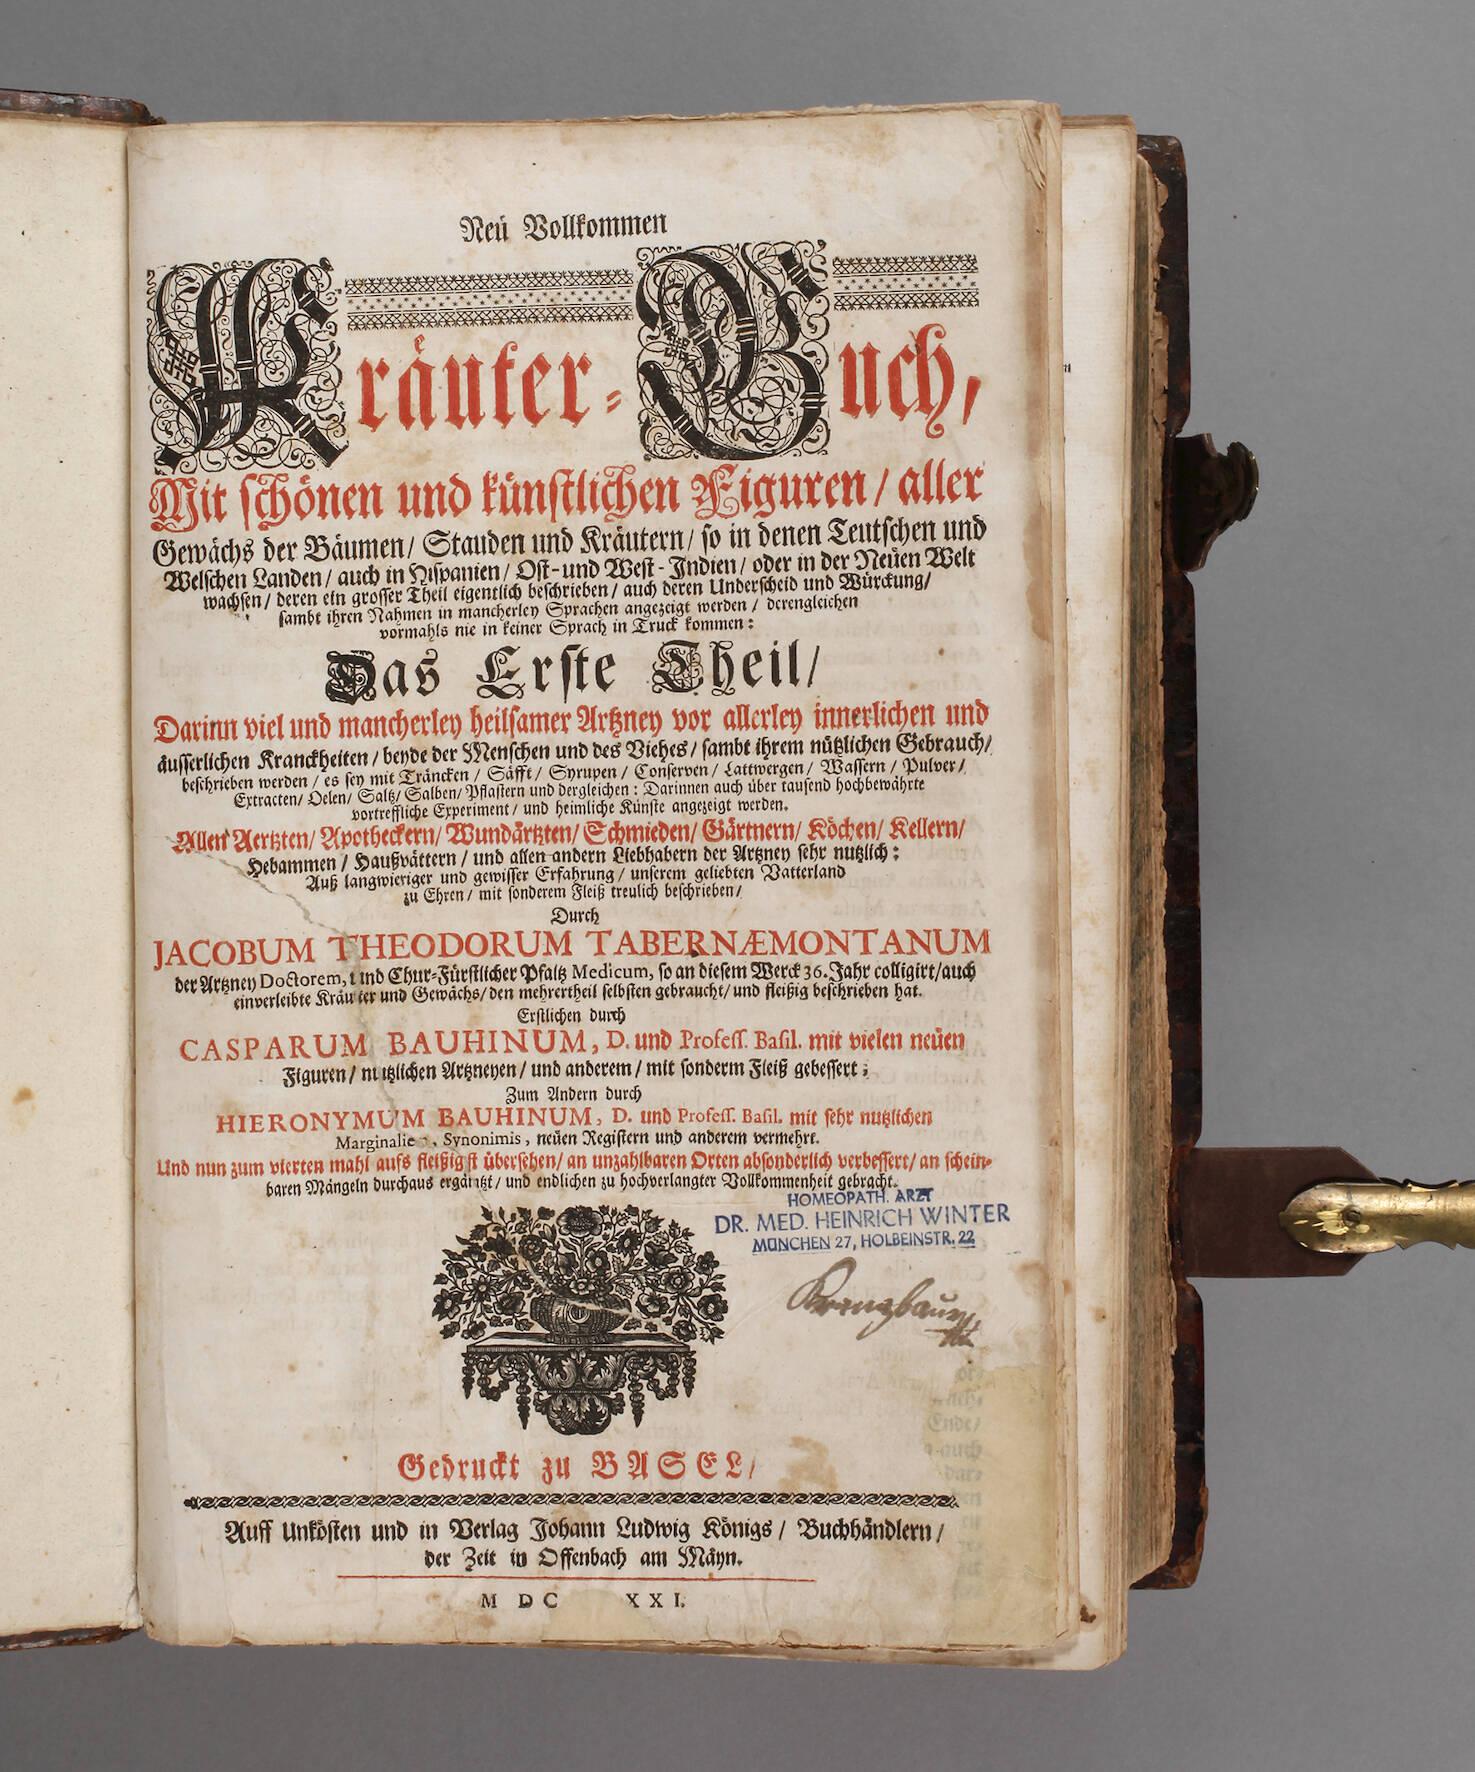 Neü Vollkommen
Kräuter-Buch,
Mit schönen und künstlichen Figuren / aller
Gewächs der Bäumen / Stauden und Kräutern / so in denen Teutschen und
Welschen Landen / auch in Hispanien / Ost- und West-Indien / oder in der Neüen Welt
wachsen / deren ein grosser Theil eigentlich beschrieben / auch deren Underscheid und Würckung /
sambt ihren Nahmen in mancherley Sprachen angezeigt werden / derengleichen
vormahls nie in keiner Sprach in Truck kommen:
Das Erste Theil /
Darinn viel und mancherley heilsamer Artzney vor allerley innerlichen und
äusserlichen Kranckheiten / beyde der Menschen und des Viehes / sambt ihrem nützlichen Gebrauch /
beschrieben werden / es sey mit Träncken / Säfft / Syrupen / Conserven / Lattwergen / Wassern / Pulver /
Extracten / Oelen / Saltz / Salben / Pflastern und dergleichen: Darinnen auch über tausend hochbewährte
vortreffliche Experiment / und heimliche Künste angezeigt werden.
Allen Aertzten / Apotheckern / Wundärtzten / Schmieden / Gärtnern / Köchen / Kellern /
Hebammen / Haußvättern / und allen andern Liebhabern der Artzney sehr nutzlich:
Auß langwieriger und gewisser Erfahrung / unserem geliebten Vatterland
zu Ehren / mit sonderem Fleiß treulich beschrieben /
Durch
JACOBUM THEODORUM TABERNÆMONTANUM
der Artzney Doctorem, und Chur-Fürstlicher Pfaltz Medicum, so an diesem Werck 36. Jahr colligirt / auch
einverleibte Kräuter und Gewächs / den mehrertheil selbsten gebraucht / und fleißig beschrieben hat.
Erstlichen durch
CASPARUM BAUHINUM, D. und Profess. Basil. mit vielen neüen
Figuren / nutzlichen Artzneyen / und anderem / mit sonderm Fleiß gebessert;
Zum Andern durch
HIERONYMUM BAUHINUM, D. und Profess. Basil. mit sehr nutzlichen
Marginalien, Synonimis, neüen Registern und anderem vermehrt.
Und nun zum vierten mahl aufs fleißigst übersehen / an unzahlbaren Orten absonderlich verbessert / an schein-
baren Mängeln durchaus ergäntzt / und endlichen zu hochverlangter Vollkommenheit gebracht.
HOMÖOPATH. ARZT
DR. MED. HEINRICH WINTER
MÜNCHEN 27, HOLBEINSTR. 22
Gedruckt zu BASEL /
Auff Unkösten und in Verlag Johann Ludwig Königs / Buchhändlern /
der Zeit in Offenbach am Mäyn.
M DC XXI.